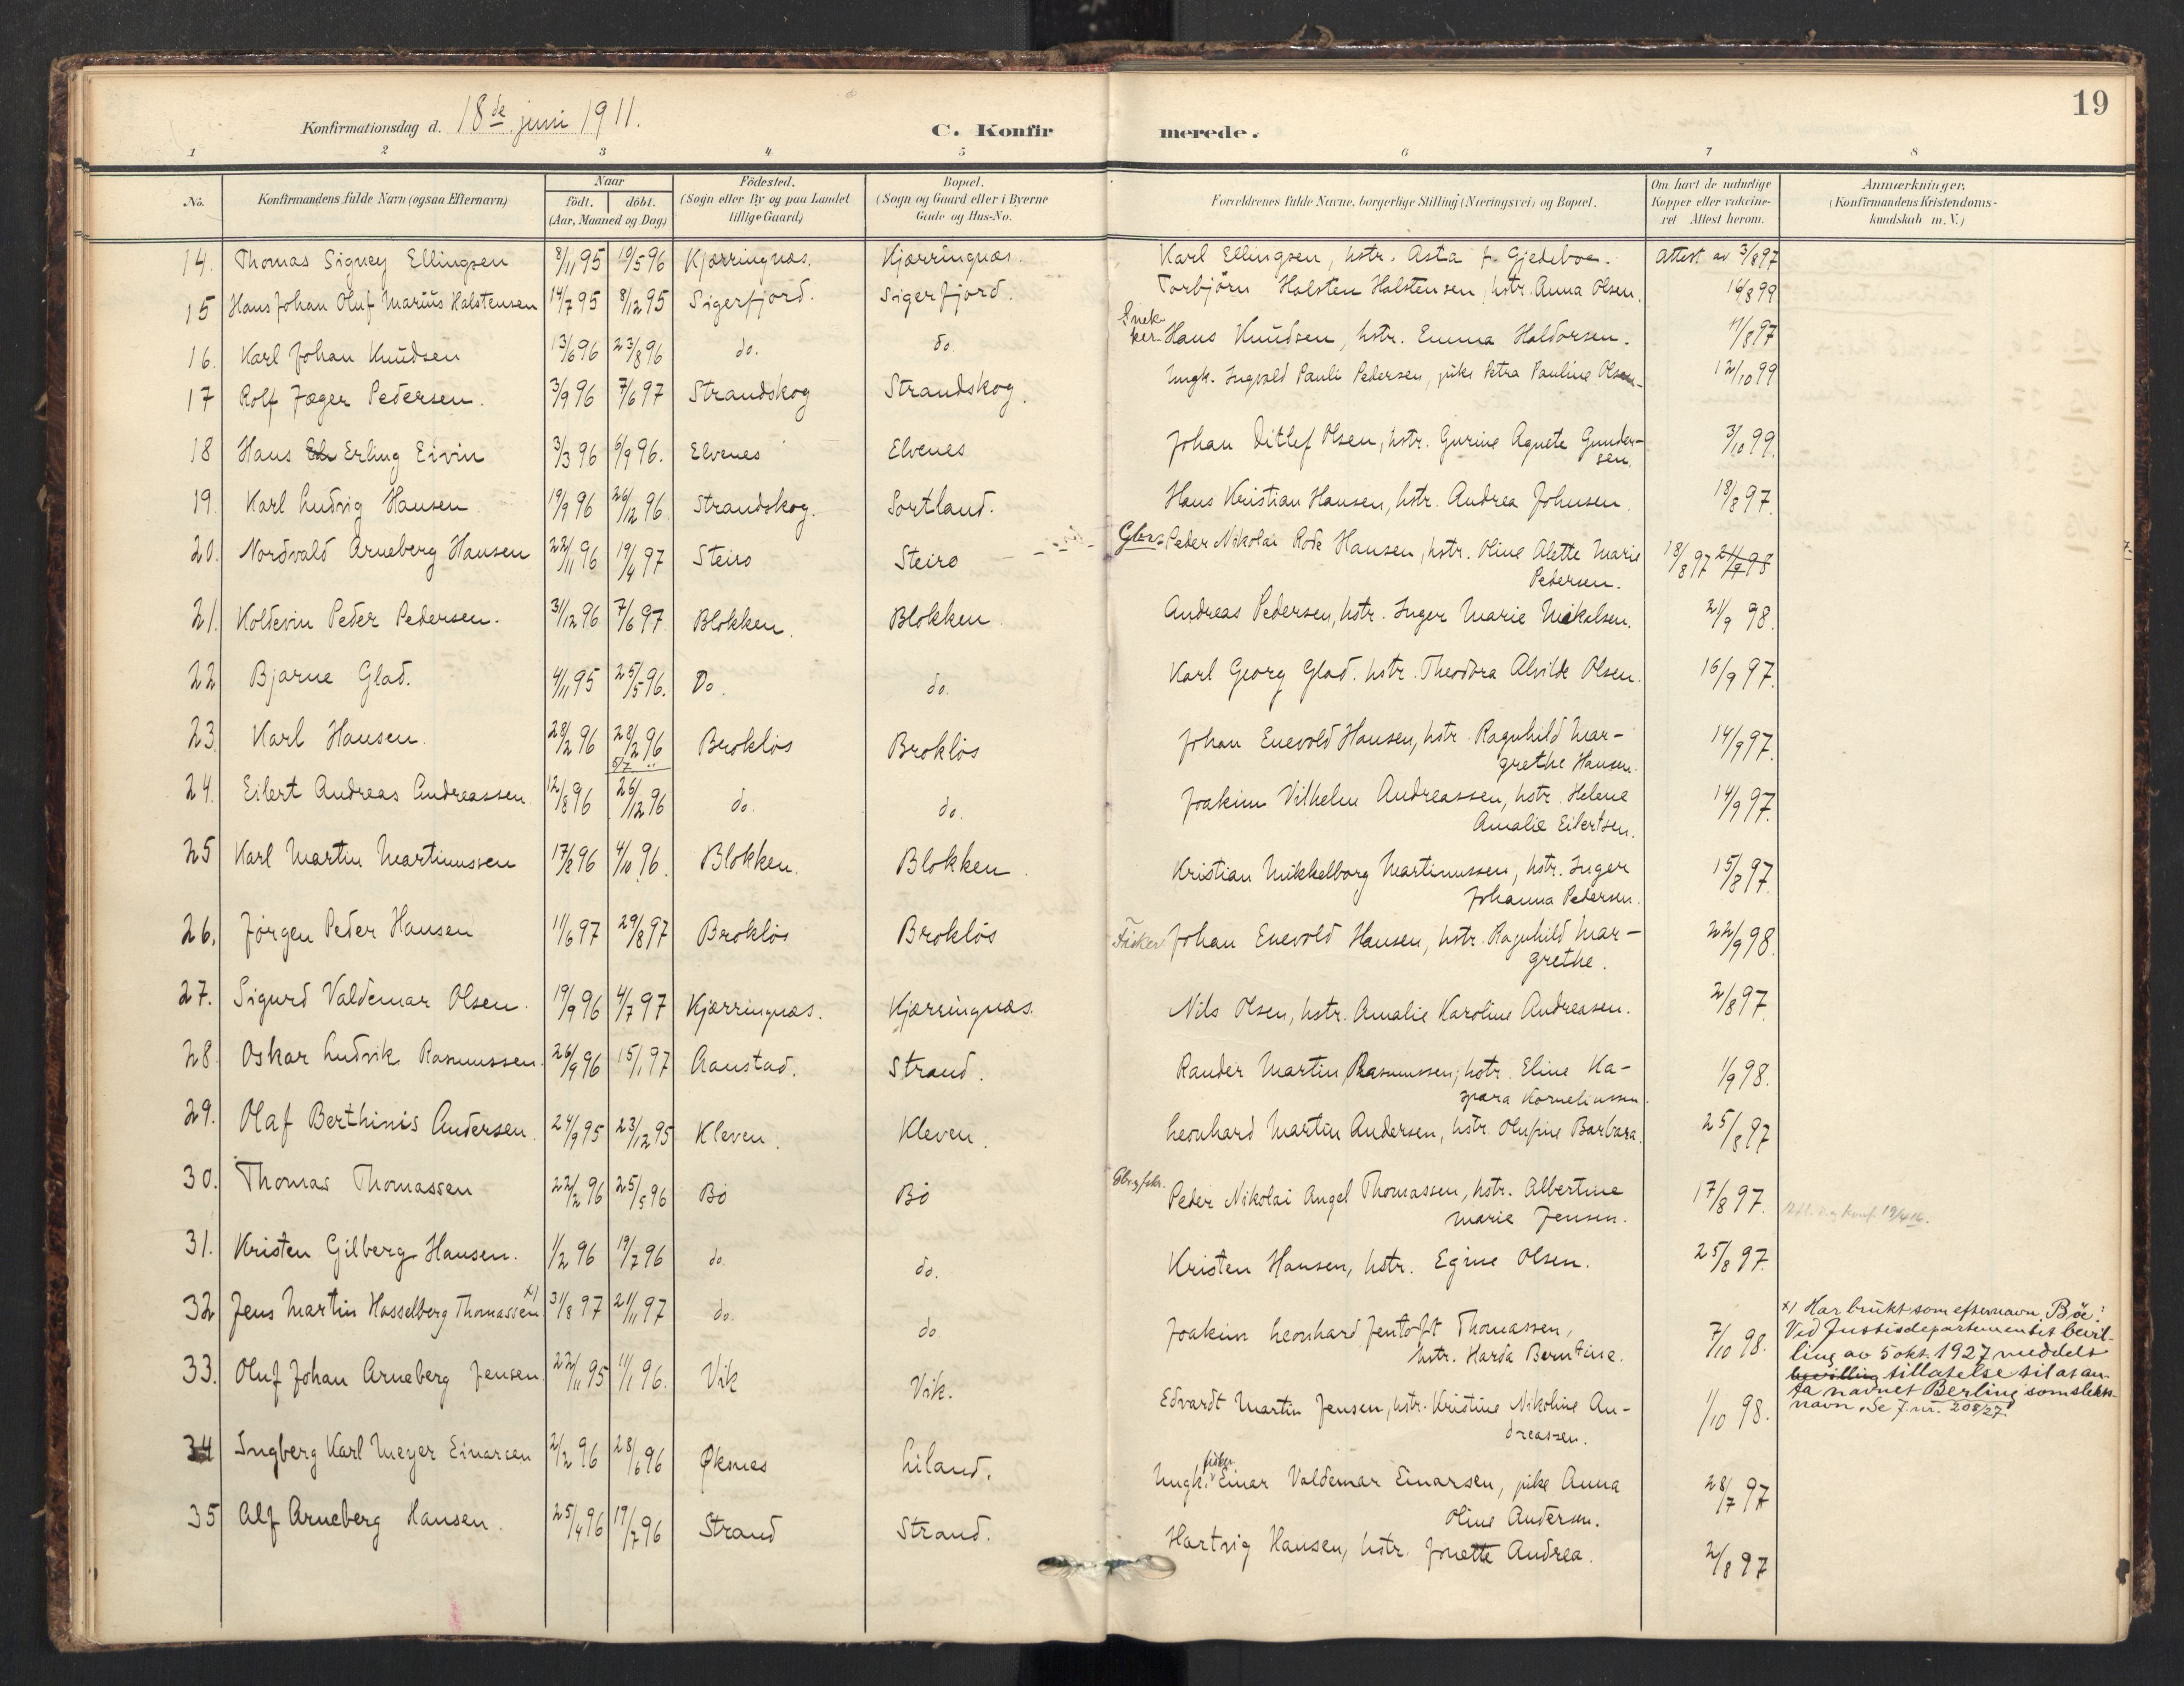 19
Konfirmationsdag d. 18de juni 1911.
C. Konfir merede.
1 2 3 4 5 6 7 8
No.
Konfirmandens fulde Navn (ogsaa Efternavn)
Naar
født. døbt.
(Aar, Maaned og Dag)
Fødested.
(Sogn eller By og paa Landet
tillige Gaard)
Bopæl.
(Sogn og Gaard eller i Byerne
Gade og Hus-No.
Forældrenes fulde Navne, borgerlige Stilling (Næringsvei) og Bopæl.
Om havt de naturlige
Kopper eller vaccine-
ret Attest herom.
Anmærkninger.
(Konfirmandens Kristendoms-
kundskab m. V.)
14. Thomas Signey Ellingsen 8/11 95 10/5 96 Kjærringnæs. Kjærringnæs. Karl Ellingsen, hstr. Asta f. Gjedeboe. Attest av 3/8 97
15 Hans Johan Oluf Marius Halstensen 14/7 95 8/12 95 Sigerfjord. Sigerfjord. Torbjörn Halsten Halstensen, hstr. Anna Olsen. 16/8 99
16. Karl Johan Knudsen 13/6 96 23/8 96 do. do. Snek-
ker. Hans Knudsen, hstr. Emma Haldorsen. 11/8 97
17 Rolf Jæger Pedersen. 3/9 96 7/6 97 Strandskog Strandskog. Ungk. Ingvald Pauli Pedersen, pike Petra Pauline Olsen 12/10 99
18 Hans Erling Eivin 3/3 96 6/9 96. Elvenes Elvenes Johan Ditlef Olsen, hstr. Gurine Agnete Gunder-
sen. 3/10 99.
19. Karl Ludvig Hansen 19/9 96 26/12 96 Strandskog. Sortland. Hans Kristian Hansen, hstr. Andrea Johnsen. 18/8 97.
20. Nordvald Arneberg Hansen 22/11 96 19/4 97 Steiro Steiro Gbr. Peder Nikolai Rode Hansen, hstr. Oline Alette Marie
Pedersen. 18/8 97 21/9 98
21. Koldevin Peder Pedersen. 31/12 96 7/6 97 Blokken. Blokken Andreas Pedersen, hstr. Inger Marie Mikalsen. 21/9 98.
22 Bjarne Glad. 4/11 95 25/5 96. Do. do. Karl Georg Glad. hstr. Theodora Alvilde Olsen. 16/9 97.
23. Karl Hansen. 28/2 96 28/2 96 5/7 .. Brokløs Brokløs Johan Enevold Hansen, hstr. Ragnhild Mar-
grethe Hansen. 14/9 97.
24. Eilert Andreas Andreassen. 12/8 96 26/12 96 do. do. Joakim Vilhelm Andreassen, hstr. Helene
Amalie Eilertsen. 14/9 97.
25 Karl Martin Martinussen 17/8 96 4/10 96. Blokken. Blokken. Kristian Mikkelborg Martinussen, hstr. Inger
Johanna Pedersen. 15/8 97.
26. Jørgen Peder Hansen 11/6 97 29/8 97 Brokløs Brokløs Fisker Johan Enevold Hansen, hstr. Ragnhild Mar-
grethe. 22/9 98.
27. Sigurd Valdemar Olsen. 19/9 96 4/7 97 Kjærringnæs. Kjærringnæs. Nils Olsen, hstr. Amalie Karoline Andreasen. 2/8 97.
28. Oskar Ludvik Rasmussen. 26/9 96 15/1 97 Aanstad. Strand. Rander Martin Rasmussen, hstr. Eline Ka-
spara Korneliussen. 1/9 98.
29. Olaf Berthinis Andersen. 24/9 95 23/12 95 Kleven. Kleven. Leonhard Martin Andersen, hstr. Olufine Barbara. 25/8 97
30. Thomas Thomassen 22/2 96 25/5 96 Bö Bö Gbr. Peder Nikolai Angel Thomassen, hstr. Albertine
Marie Jensen. 17/8 97. konf. 19/4 16.
31. Kristen Gilberg Hansen. 1/2 96 19/7 96 do. do. Kristen Hansen, hstr. Egine Olsen. 25/8 97.
32 Jens Martin Hasselberg Thomassen x) 31/8 97 21/11 97 do. do. Joakim Leonhard Jentoft Thomassen,
hstr. Harda Berntine. 7/10 98.
x) Har brukt som efternavn Böe.
Ved Justisdepartementets bevil-
ling av 5 okt. 1927 meddelt
bevilling tillatelse til at an-
ta navnet Berling som slekts-
navn. Se J.nr. 208/27.
33. Oluf Johan Arneberg Jensen. 22/11 95 11/1 96. Vik Vik. Edvardt Martin Jensen, hstr. Kristine Nikoline An-
dreassen. 1/10 98.
34 Ingberg Karl Meyer Einarsen 2/2 96 28/6 96 Øksnes Liland. Ungk. fisker Einar Valdemar Einarsen, pike Anna
Oline Andersen. 28/7 97
35 Alf Arneberg Hansen. 25/4 96 19/7 96 Strand Strand. Hartvig Hansen, hstr. Jonette Andrea. 2/8 97